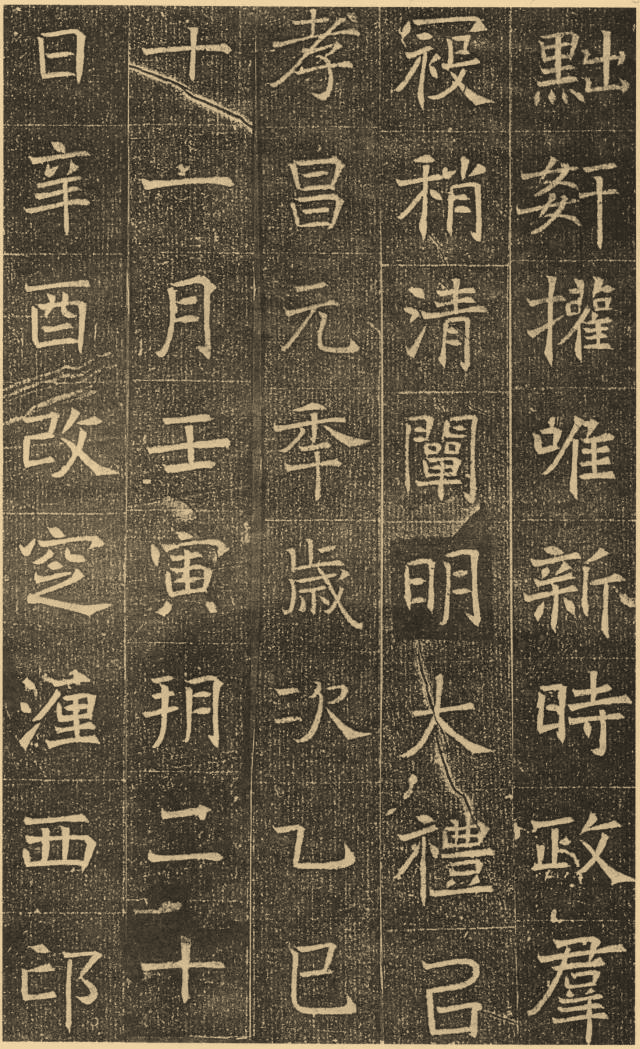 黜奸攉唯新時政羣
祲稍清闡明大禮㠯
孝昌元年歲次乙巳
十一月壬寅朔二十
日辛酉改窆瀍西邙